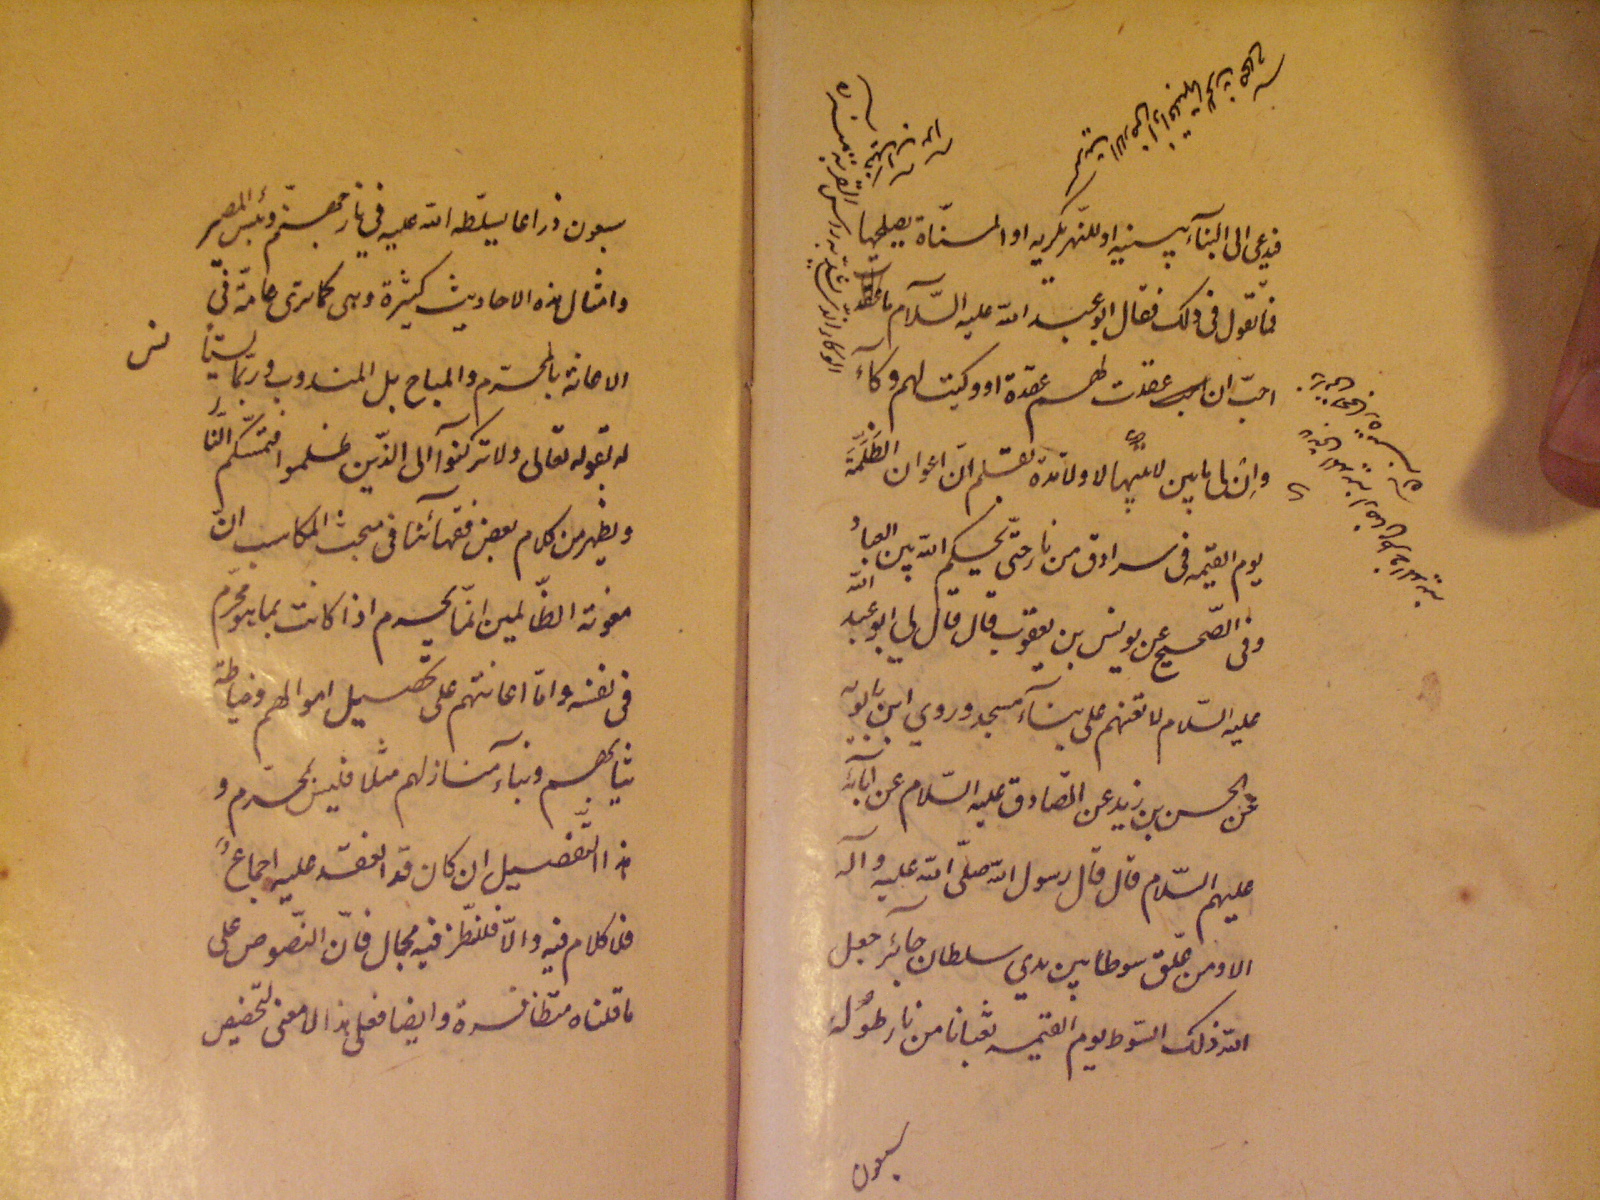 فيدعى الى البنآء يبنيه او للنهر يكريه او المسنّاة يصلحها
فما تقول فى ذلك فقال ابو عبد الله عليه السّلام ما
احبّ ان عقدت لهم عقدة او وكيت لهم وكآء
وان لى ما بين لابتيها لا ولا مدّة بقلم انّ اعوان الظَلَمَة
يوم القيمه فى سرادق من نار حتّى يحكم الله بين العباد
وفى الصّحيح عن يونس بن يعقوب قال قال لي ابو عبد الله
عليه السّلام لا تعنهم على بنآء مسجد وروي ابن بابويه
عن الحسن بن زيد عن الصّادق عليه السّلام عن آبائه
عليهم السّلام قال قال رسول الله صلّى الله عليه وآله
الا ومن علّق سوطا بين يدي سلطان جائر جعل
الله ذلك السّوط يوم القيمه ثعبانا من نار طوله
سبعون
سبعون ذراعا يسلّطه الله عليه فى نار جهنّم وبئس المصير
وامثال هذه الاحاديث كثيرة وهى كما ترى عامّة فى
الاعانة بالمحرّم والمباح بل المندوب وربّما يستأنس
له بقوله تعالى ولا تركنوآ الى الذّين ظلموا فتمسّكم النّار
ويظهر من كلام بعض فقهآئنا فى مبحث المكاسب انّ
معونة الظّالمين انمّا يحرم اذا كانت بما هو محرّم
فى نفسه وامّا اعانتهم على تحصيل اموالهم وخياطة
ثيابهم وبناء منازلهم مثلا فليس بمحرّم و
هذا التّفصيل ان كان قد انعقد عليه اجماع
فلا كلام فيه والاّ فللنّظر فيه مجال فانّ النّصوص على
ما قلناه متظافرة وايضا فعلى هذا لا معنى لتخصيص